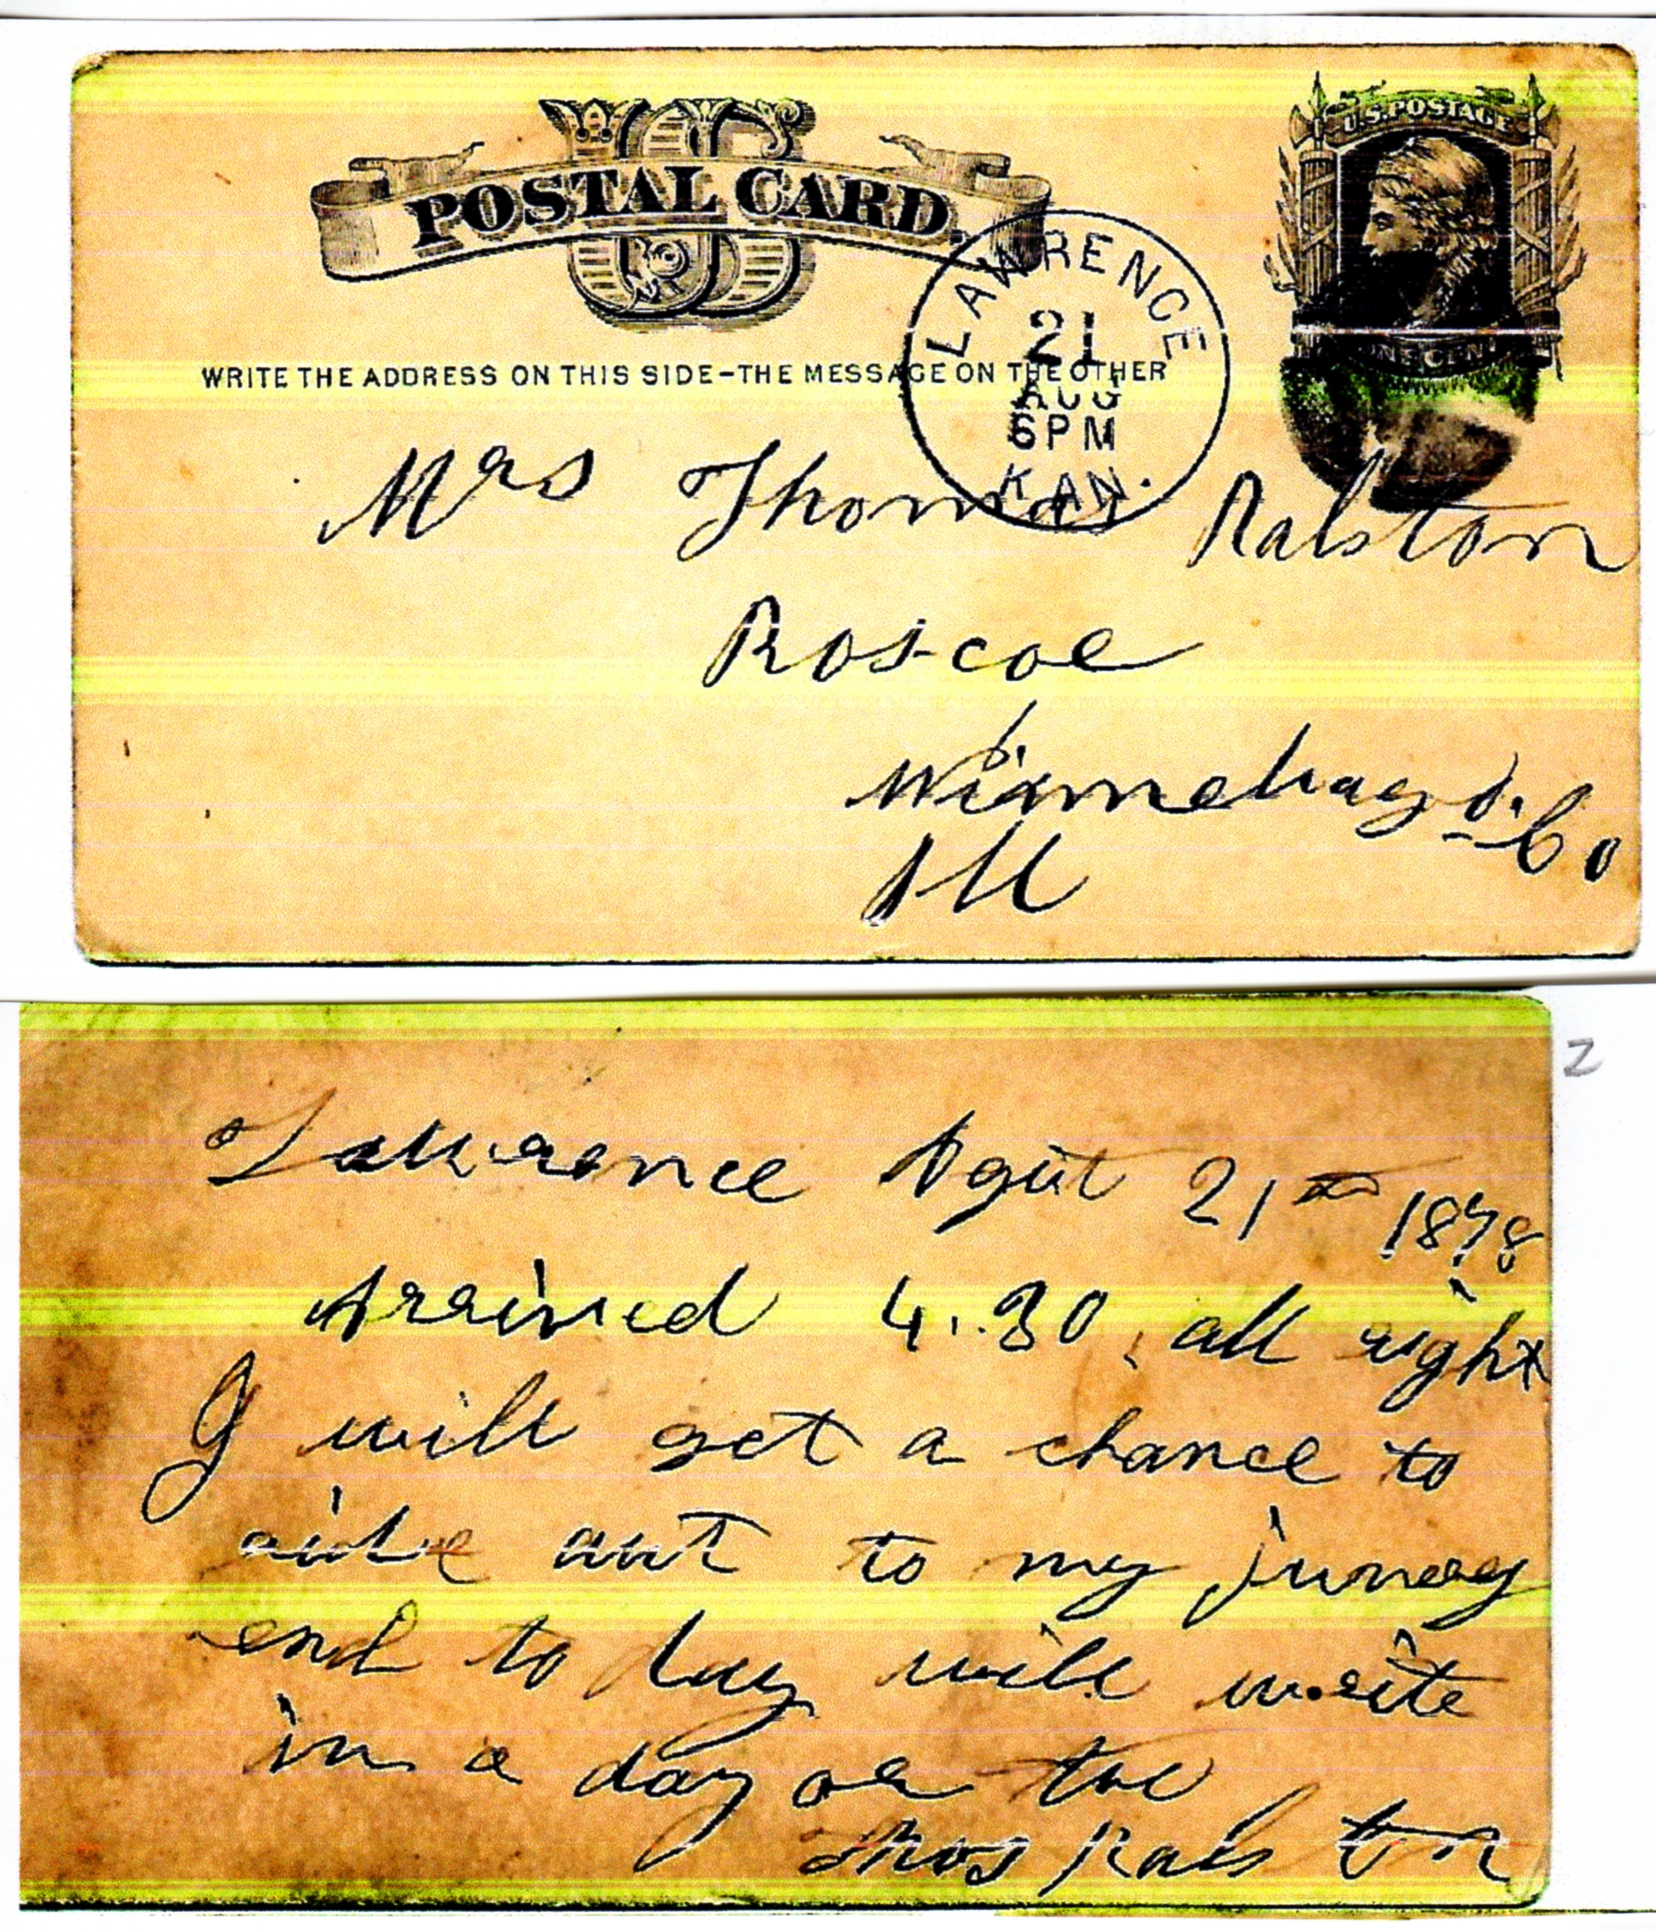 US
POSTAL CARD.
U.S. POSTAGE
ONE CENT
WRITE THE ADDRESS ON THIS SIDE-THE MESSAGE ON THE OTHER
LAWRENCE
21
AUG
6PM
KAN.
Mrs Thomas Ralston
Roscoe
Winnebago Co
Ill
2
Lawrence Agut 21 1878
Arrived 4.30 all right
I will get a chance to
ride out to my jurney
end to day will write
in a day or two
Thos Ralston